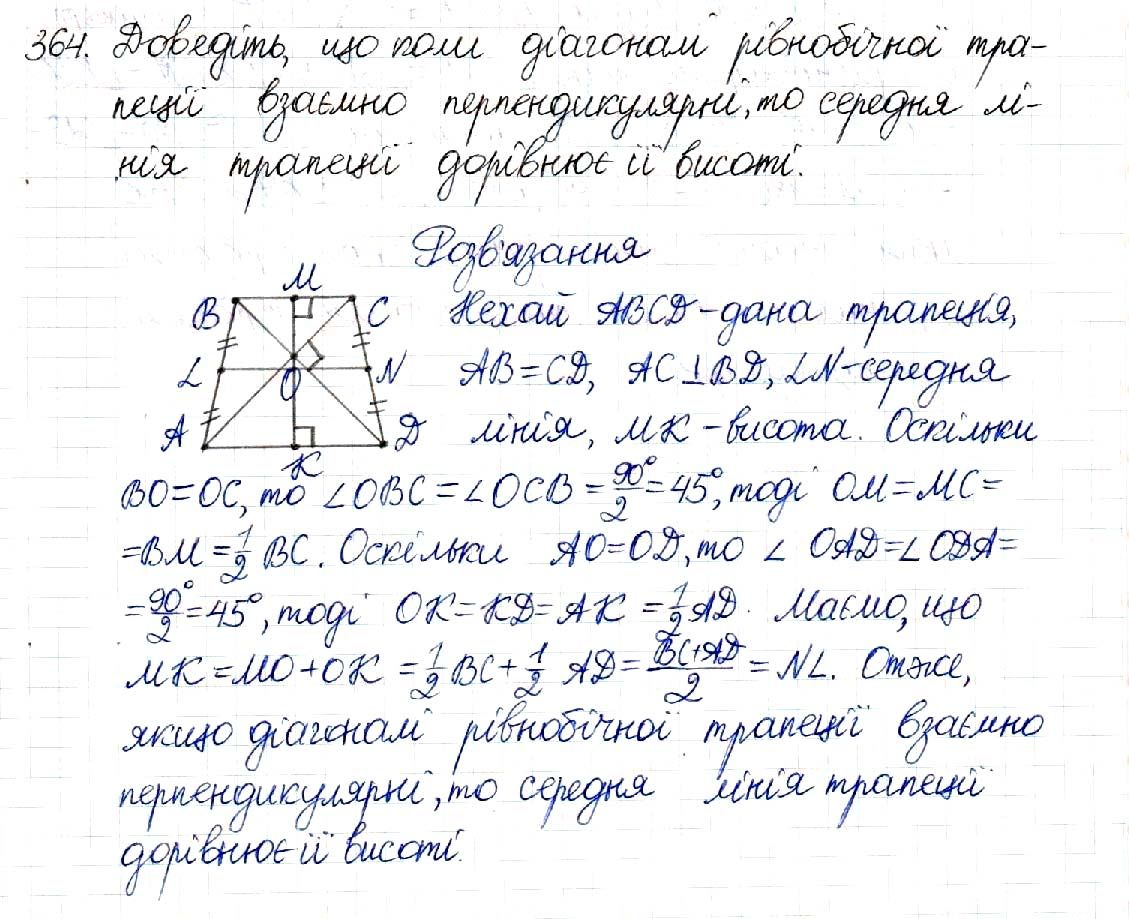 364. Доведіть, що коли діагоналі рівнобічної тра-
пеції взаємно перпендикулярні, то середня лі-
нія трапеції дорівнює її висоті.
Розв'язання
M
B C Нехай ABCD - дана трапеція,
L O N AB = CD, AC ⊥ BD, LN - середня
A D лінія, MK - висота. Оскільки
K
BO = OC, то ∠OBC = ∠OCB = 90°/2 = 45°, тоді OM = MC =
= BM = 1/2 BC. Оскільки AO = OD, то ∠OAD = ∠ODA =
= 90°/2 = 45°, тоді OK = KD = AK = 1/2 AD. Маємо, що
MK = MO + OK = 1/2 BC + 1/2 AD = BC+AD/2 = NL. Отже,
якщо діагоналі рівнобічної трапеції взаємно
перпендикулярні, то середня лінія трапеції
дорівнює її висоті.